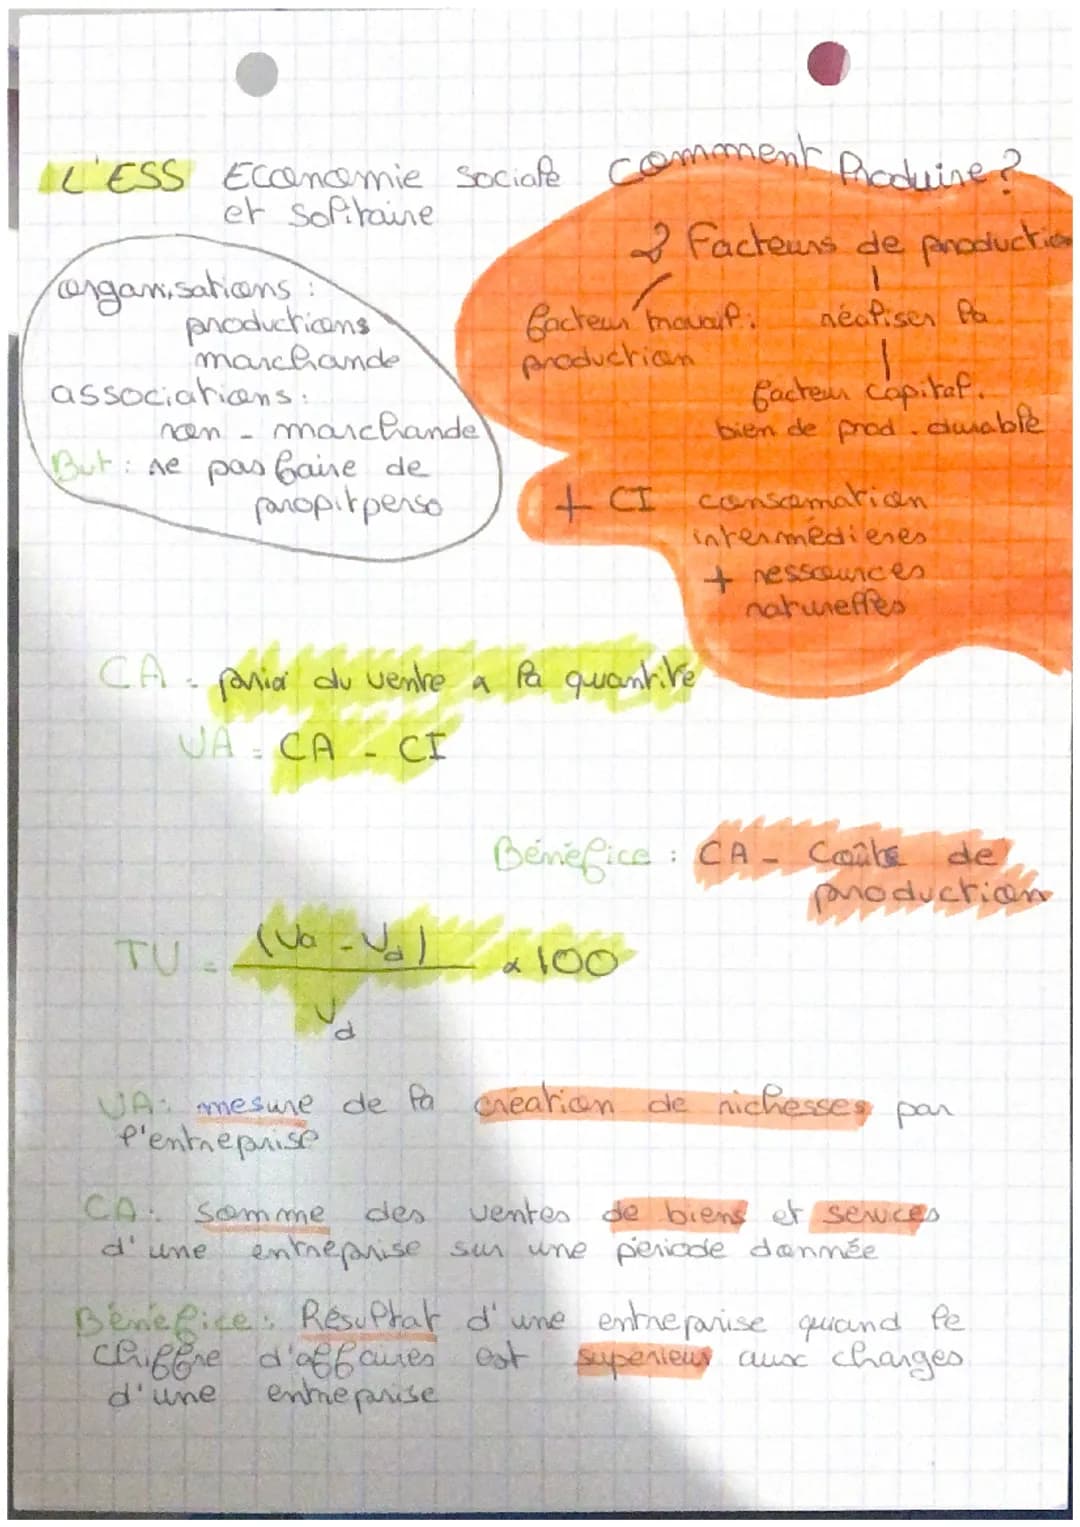 L'ESS Economie sociale
et solitaire
organisations :
productions
marchande
associations :
non - marchande
But : ne pas faire de
propit perso
Comment Produire ?
2 Facteurs de production
facteur travail :
production
réaliser la
facteur capital.
bien de prod. durable
+ CI consomation
intermédieres
+ ressources
naturelles
CA = prix du vente x la quantité
VA = CA - CI
Bénéfice : CA - Coûts de
production
TV = (Va - Vd) x 100
Vd
VA : mesure de la création de richesses par
l'entreprise
CA : Somme des ventes de biens et services
d'une entreprise sur une période donnée
Bénéfice : Résultat d'une entreprise quand le
chiffre d'affaires est supérieur aux charges
d'une entreprise